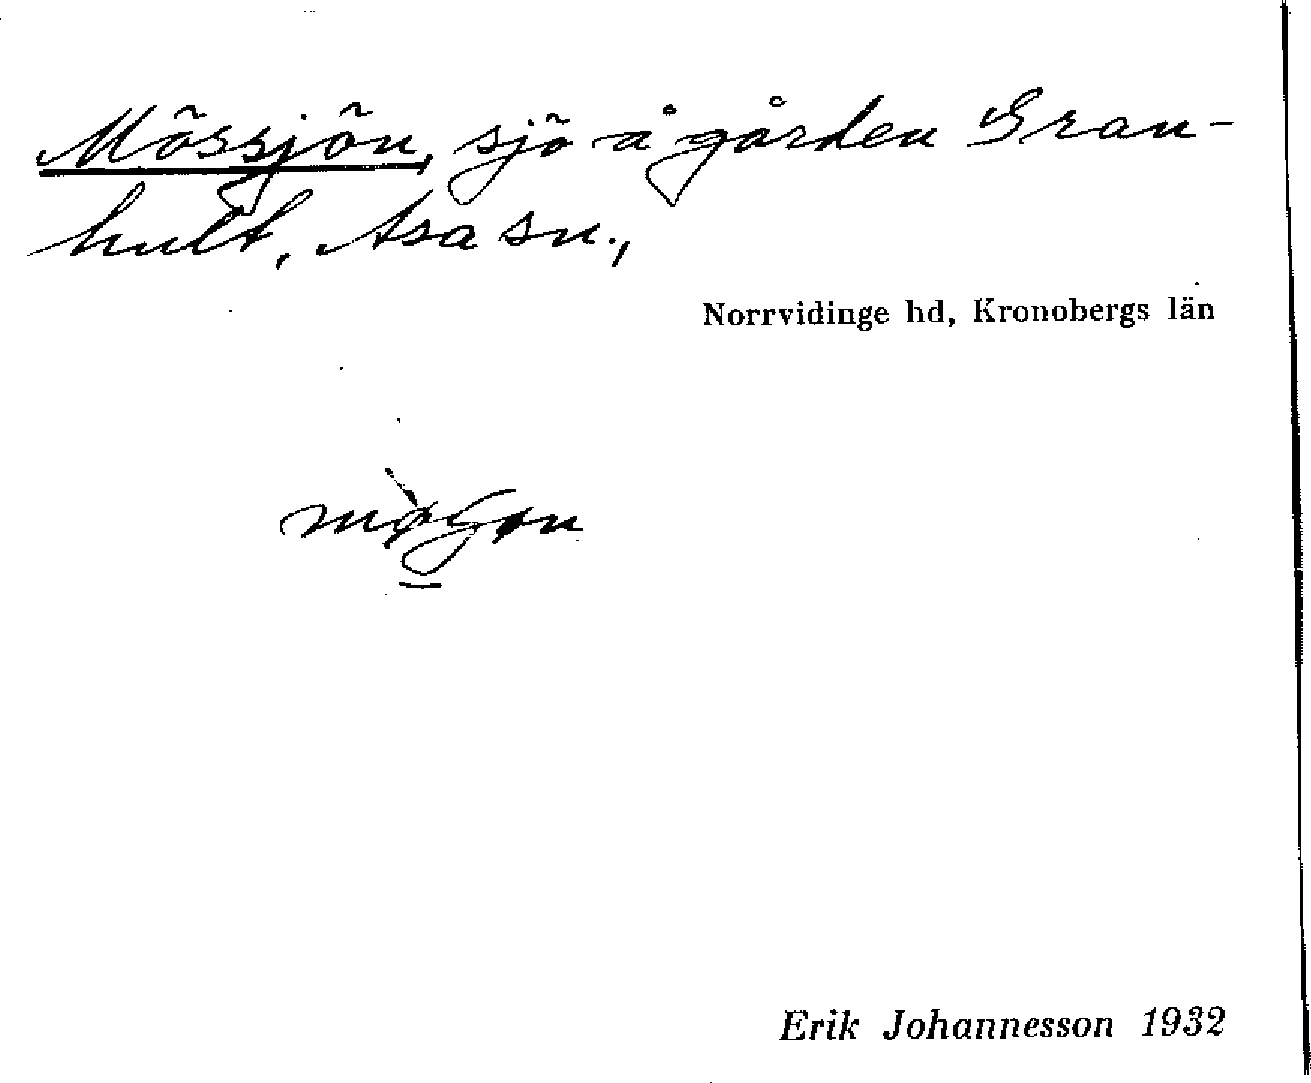 Mössjön, sjö å gården Gran-
hult, Asa sn.,
Norrvidinge hd, Kronobergs län
Erik Johannesson 1932